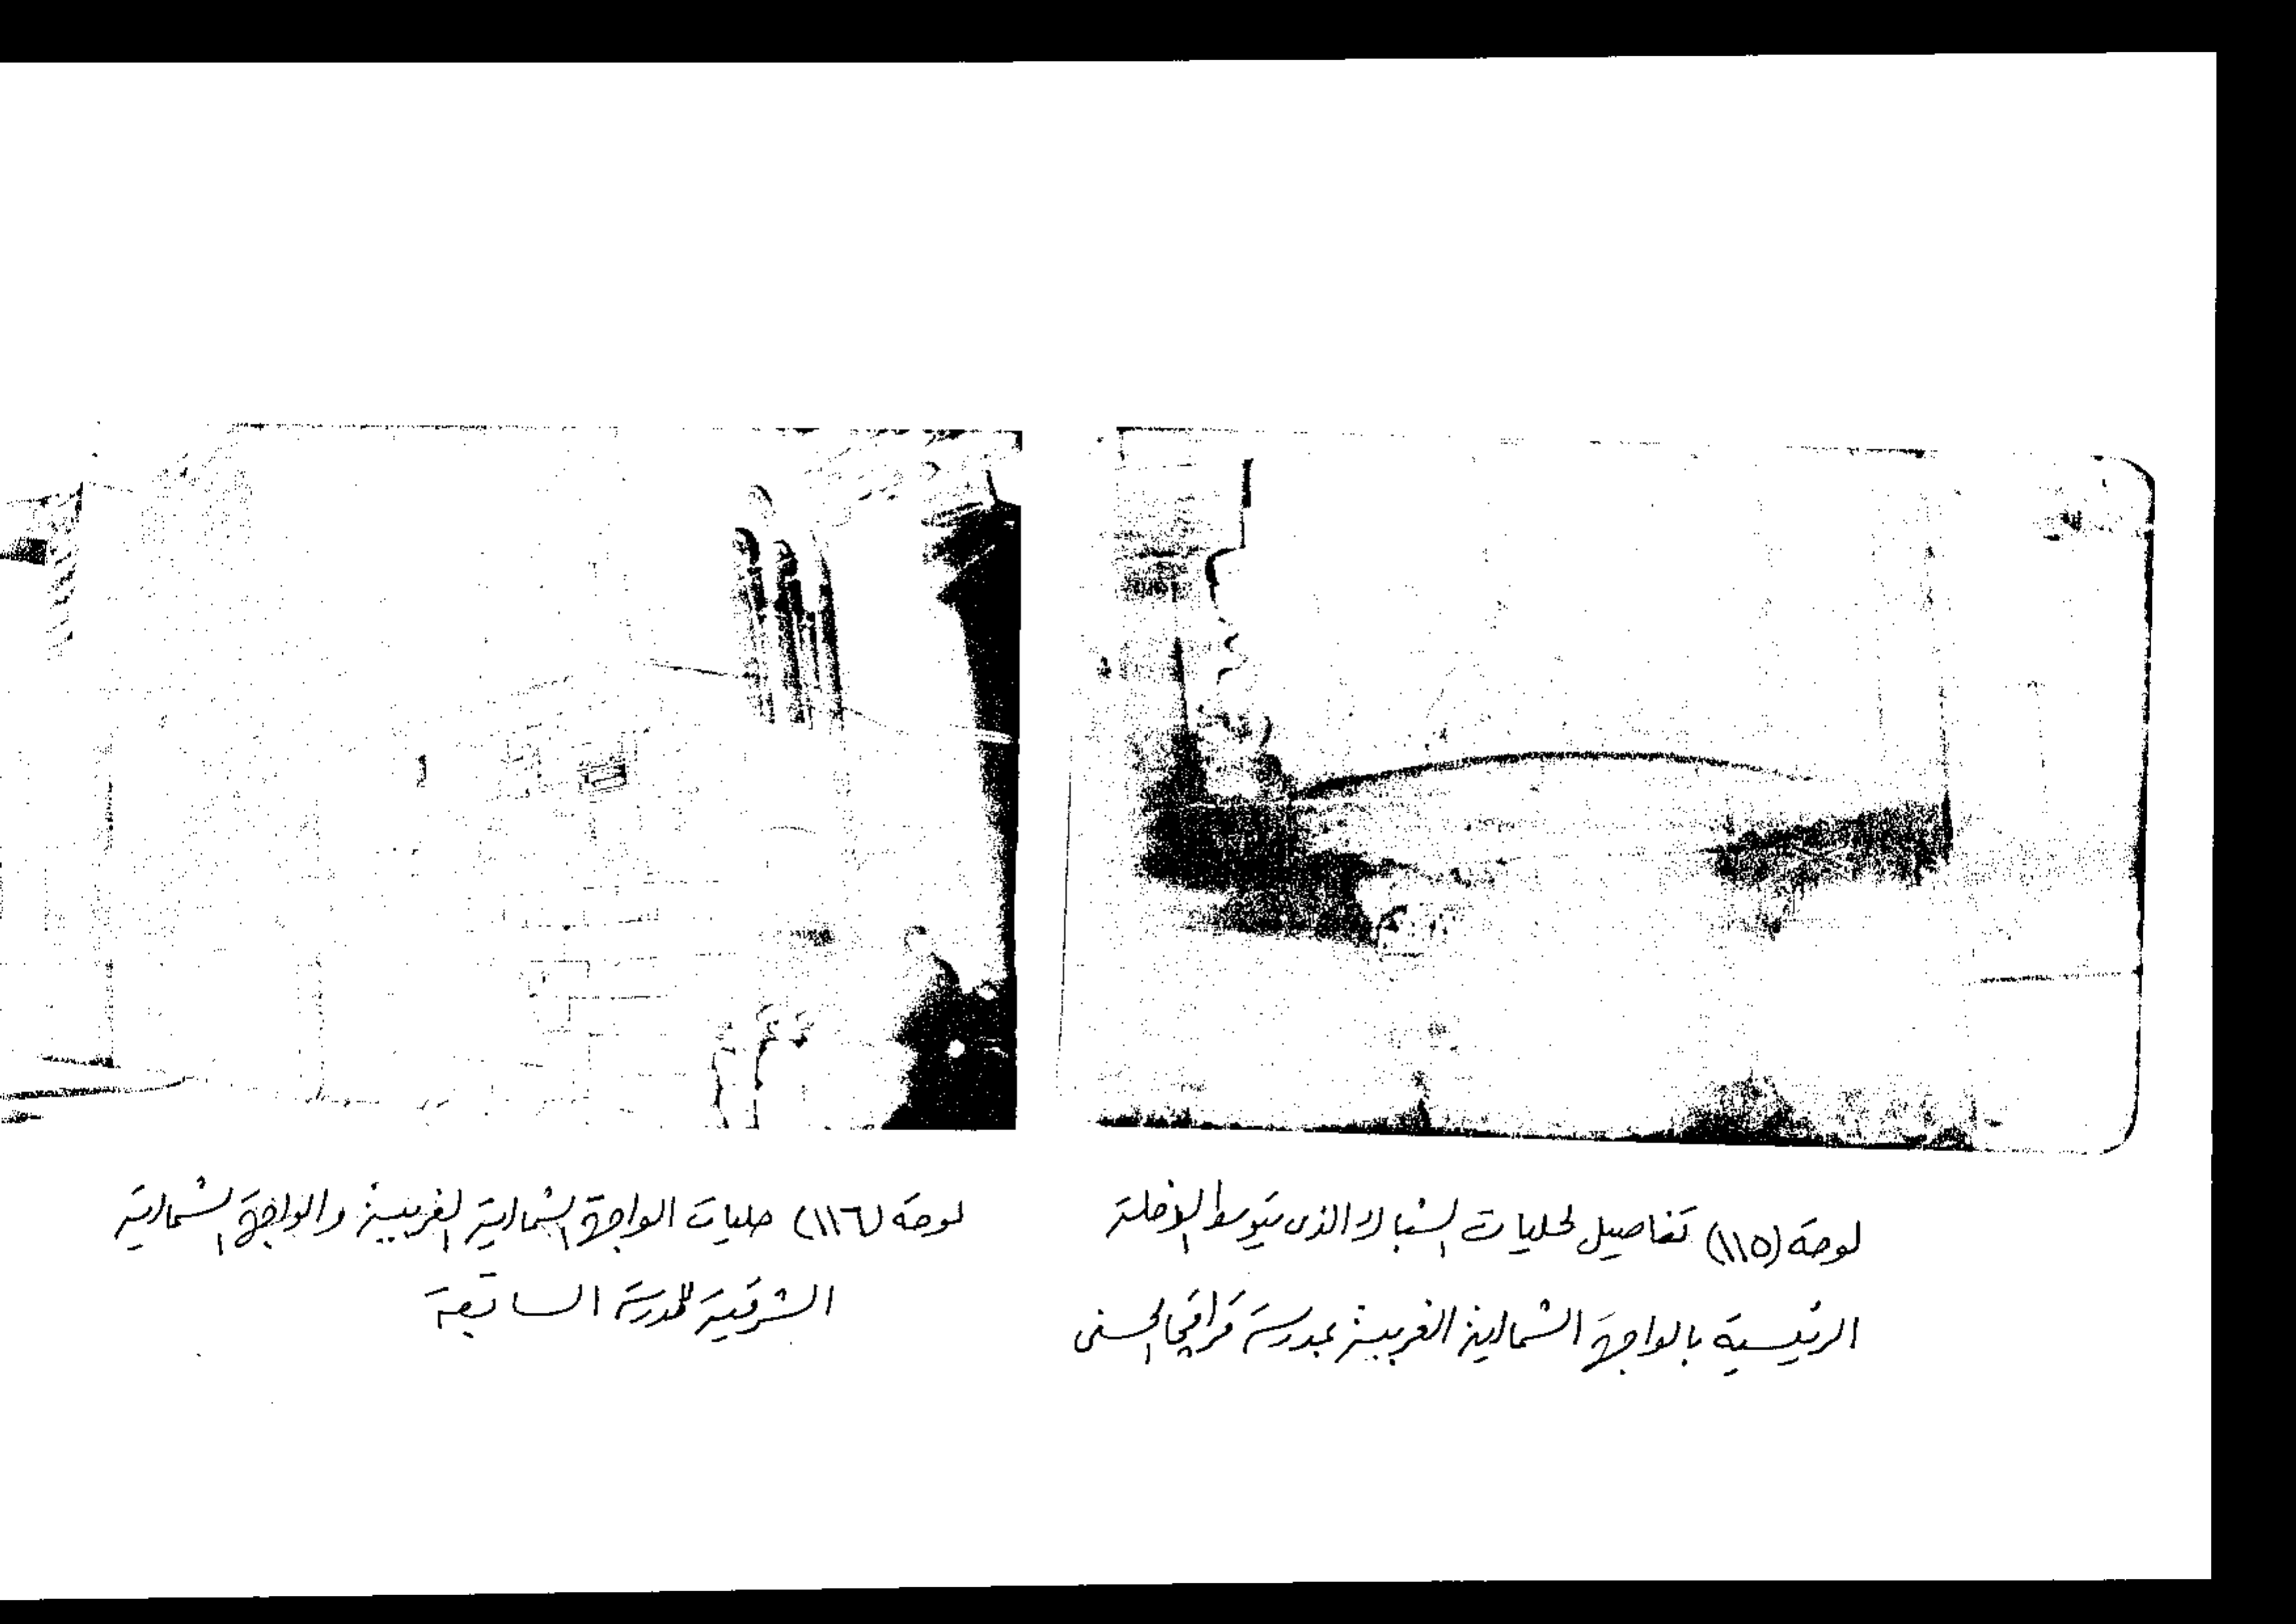 لوحة (١١٥) تفاصيل لحليات الشباك الذى يتوسط الدخلة
الرئيسية بالواجهة الشمالية الغربية بمدرسة قراقجا الحسنى
لوحة (١١٦) حليات الواجهة الشمالية الغربية والواجهة الشمالية
الشرقية للمدرسة السابقة